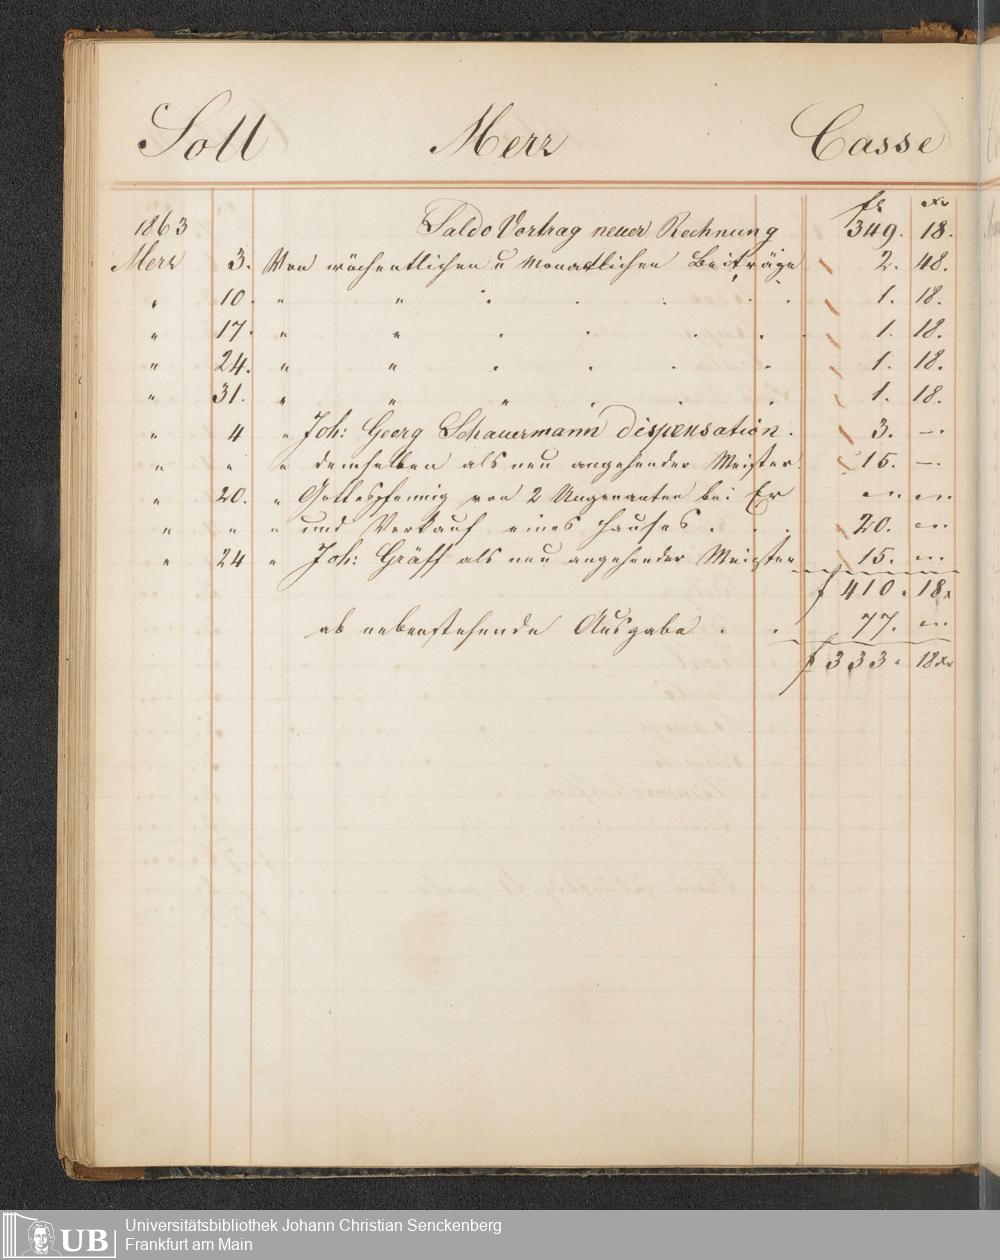 Soll Merz Casse
fl xr
1863 Saldo Vortrag neuer Rechnung 349. 18.
Merz 3. Von wöchentlichen u monatlichen Beiträge 2. 48.
" 10. " " . . . . . 1. 18.
" 17. " " . . . . 1. 18.
" 24. " " . . . . 1. 18.
" 31. " " " . . . 1. 18.
" 4 " Joh: Georg Schauermann dispensation. 3. —.
" " " demselben als neu angehender Meister. 15. —.
" 20. " Gottespfennig von 2 Ungenanten bei Er " "
" " " und Verkauf eines Hauses . . . 20. "
" 24 " Joh: Gräff als neu angehender Meister 15. "
f 410. 18.
ab nebenstehende Ausgabe . . 77. "
f 333. 18xr
UB Universitätsbibliothek Johann Christian Senckenberg
Frankfurt am Main